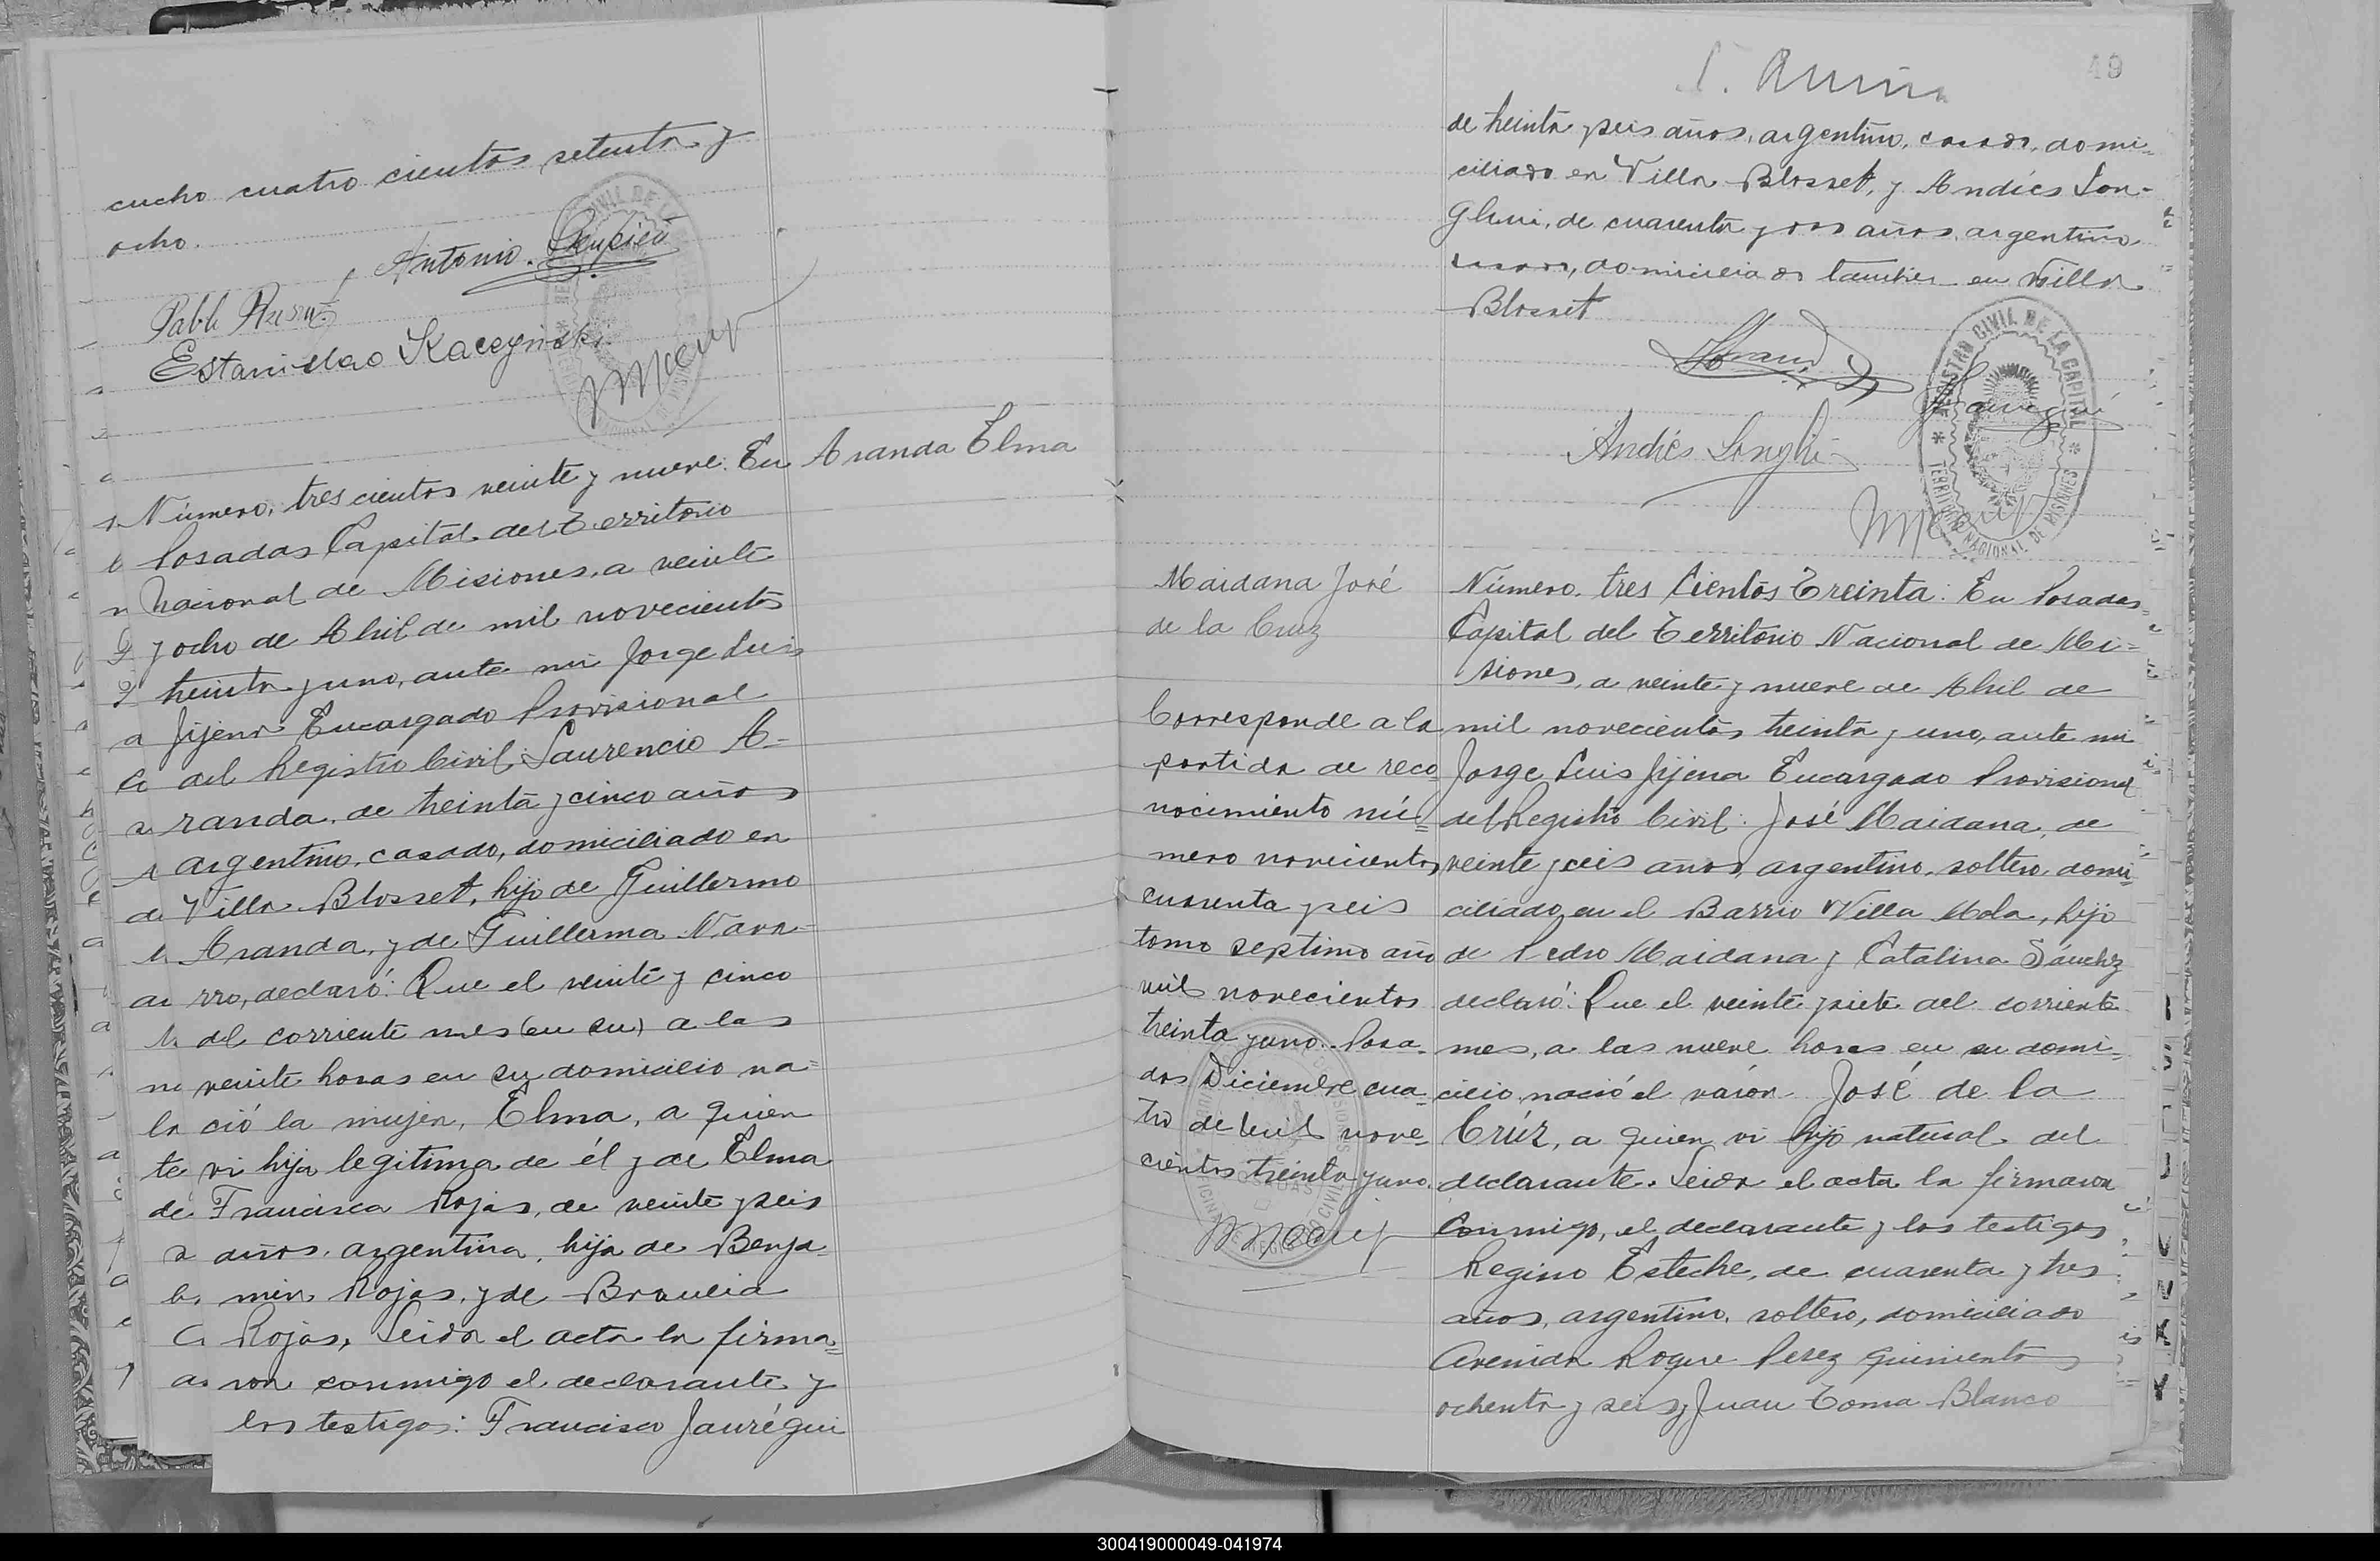 cucho cuatro cientos setenta y
ocho.
Antonio
Pablo
Estanislao Kaczynski
Aranda Elma
Número, trescientos veinte y nueve: En
Posadas Capital del Territorio
Nacional de Misiones, a veinte
y ocho de Abril de mil novecientos
treinta y uno, ante mi Jorge Luis
Jijena Encargado Provisional
del Registro Civil: Laurencio A=
randa, de treinta y cinco años
argentino, casado, domiciliado en
Villa Blosset, hijo de Guillermo
Aranda, y de Guillerma Nava=
rro, declaró: Que el veinte y cinco
del corriente mes (en su) a las
veinte horas en su domicilio na=
ció la mujer, Elma, a quien
vi hija legitima de él y de Elma
Francisca Rojas, de veinte y seis
años, argentina, hija de Benja=
min Rojas, y de Braulia
Rojas, Leida el acta la firma=
ron conmigo el declarante y
los testigos: Francisco Jaurégui
49
de treinta y seis años, argentino, casado, domi=
ciliado en Villa Blosset, y Andrés Lon-
ghi, de cuarenta y dos años, argentino
casado, domiciliados tambien en Villa
Blosset
Andrés Longhi
REGISTRO CIVIL DE LA CAPITAL
TERRITORIO NACIONAL DE MISIONES
Maidana José
de la Cruz
Número, tres Cientos Treinta: En Posadas
Capital del Territorio Nacional de Mi=
siones, a veinte y nueve de Abril de
mil novecientos treinta y uno, ante mi
Jorge Luis Jijena Encargado Provisional
del Registro Civil: José Maidana, de
veinte y seis años, argentino, soltero, domi=
ciliado en el Barrio Villa Mola, hijo
de Pedro Maidana y Catalina Sánchez
declaró: Que el veinte y siete del corriente
mes, a las nueve horas en su domi=
cilio, nació el varón José de la
Crúz, a quien vi hijo natural del
declarante. Leida el acta la firmaron
conmigo, el declarante y los testigos
Regino Esteche, de cuarenta y tres
años, argentino, soltero, domiciliado
Avenida Roque Perez quinientos
ochenta y seis y Juan Toma Blanco
Corresponde a la
partida de reco
nocimiento nú=
mero novecientos
cuarenta y seis
tomo septimo año
mil novecientos
treinta y uno. Posa=
das Diciembre cua=
tro de mil nove=
cientos treinta y uno.
300419000049-041974